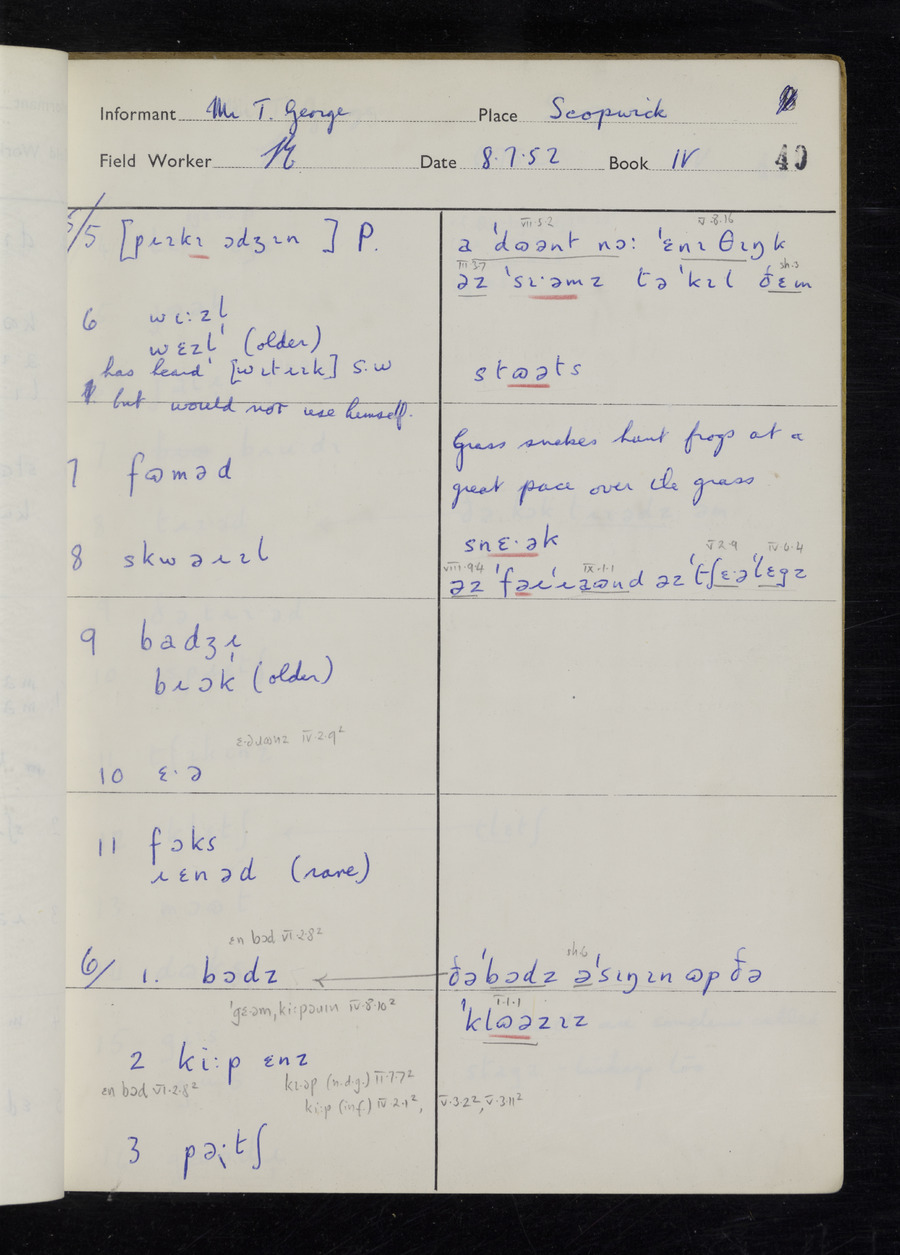 Informant Mr T. George Place Scopwick
Field Worker Date 8.7.52 Book IV 40
5/5 [pɹɪkɪ ədʒɪn ] P.
6 wɪ:zl
wɛzl (older)
has heard [wɪtɹɪk] s.w
but would not use himself.
7 fɷməd
8 skwəɹɪl
9 badʒɪ
bɹɔk (older)
ɛ·əɹɷnz IV·2·9²
10 ɛ·ə
11 fɔks
ɹɛnəd (rare)
ɛn bɔd VI·2·8²
6/ 1. bɔdz
'gɛ·əm,ki:pəɹɪn IV·8·10²
2 ki:p ɛnz
ɛn bɔd VI·2·8² kɪ·əp (n.d.g.) II·7·7²
ki:p (inf.) IV·2·1², V·3·2², V·3·11²
3 pə:tʃ
VII·5·2 V·8·16
a 'dɷənt nɔ: 'ɛnɪ θɪŋk
III·3·7 sh.3
əz 'sɪ·əmz tə 'kɪl ðɛm
stɷəts
Grass snakes hunt frogs at a
great pace over the grass
snɛ·ək
VIII·9·4 IX·1·1 V·2·9 IV·6·4
sh.6
ðə'bɔdz ə'sɪŋɪn ɷp ðə
I·1·1
'klɷəzɪz